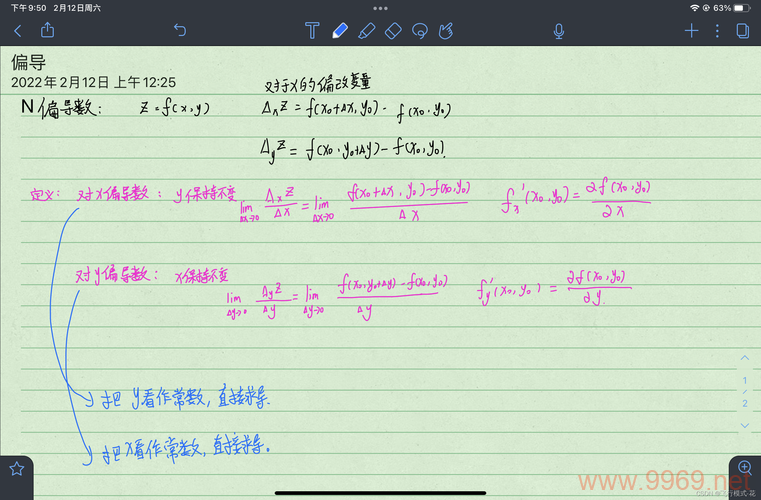 下午9:50 2月12日周六 63%
偏导
2022年2月12日 上午12:25
对于x的偏改变量
N偏导数: z=f(x,y) Δₓz=f(x₀+Δx,y₀)-f(x₀,y₀)
Δᵧz=f(x₀,y₀+Δy)-f(x₀,y₀).
定义: 对x偏导数: y保持不变 lim Δx→0 Δₓz/Δx = lim Δx→0 (f(x₀+Δx,y₀)-f(x₀,y₀))/Δx fₓ'(x₀,y₀)=∂f(x₀,y₀)/∂x
对y偏导数: x保持不变 lim Δy→0 Δᵧz/Δy = lim Δy→0 (f(x₀,y₀+Δy)-f(x₀,y₀))/Δy fᵧ'(x₀,y₀)=∂f(x₀,y₀)/∂y.
1
/
2
把y看作常数,直接求导.
把x看作常数,直接求导。
www.9969.net